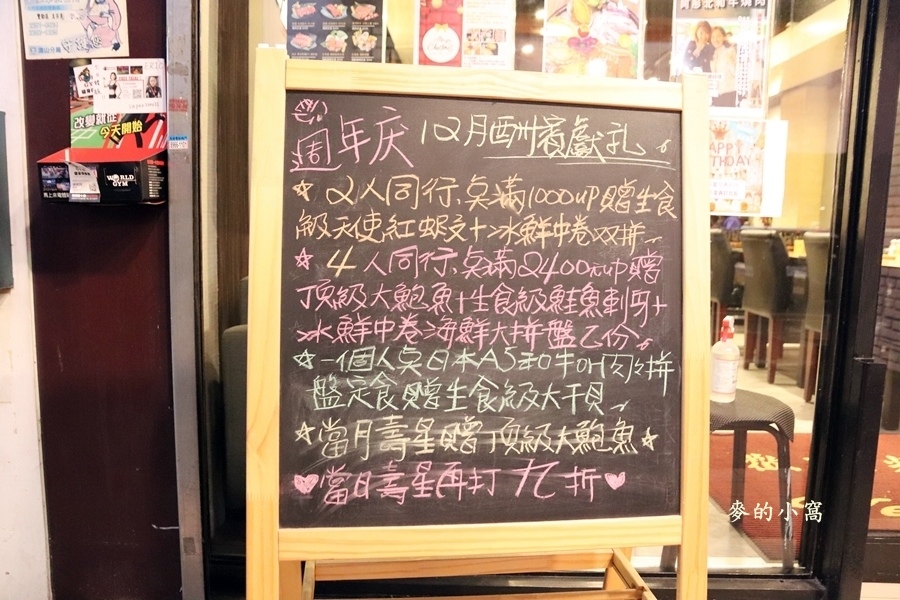 週年庆 12月酬賓獻礼
☆ 2人同行、点滿1000up贈生食
級天使紅蝦2+冰鮮中卷双拼
☆ 4人同行、点滿2400元up贈
頂級大鮑魚+生食級鮭魚刺身+
冰鮮中卷海鮮大拼盤乙份
☆一個人点日本A5和牛on肉肉拼
盤定食贈生食級大干貝
☆當月壽星贈頂級大鮑魚☆
♥當月壽星再打九折♥
改變就從
今天開始
WORLD
GYM
HAPPY
BIRTHDAY
麥的小窩